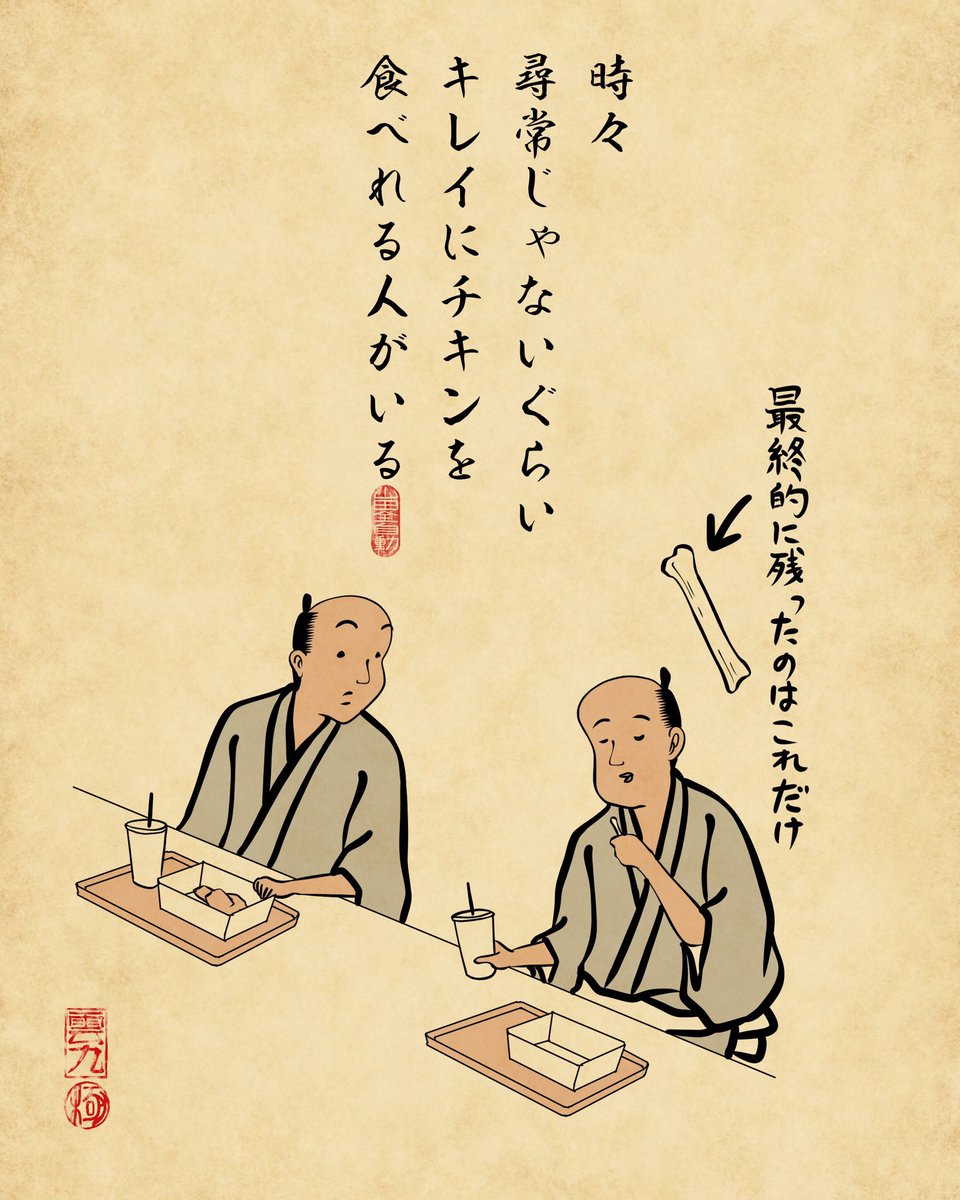 時々
尋常じゃないぐらい
キレイにチキンを
食べれる人がいる
最終的に残ったのはこれだけ